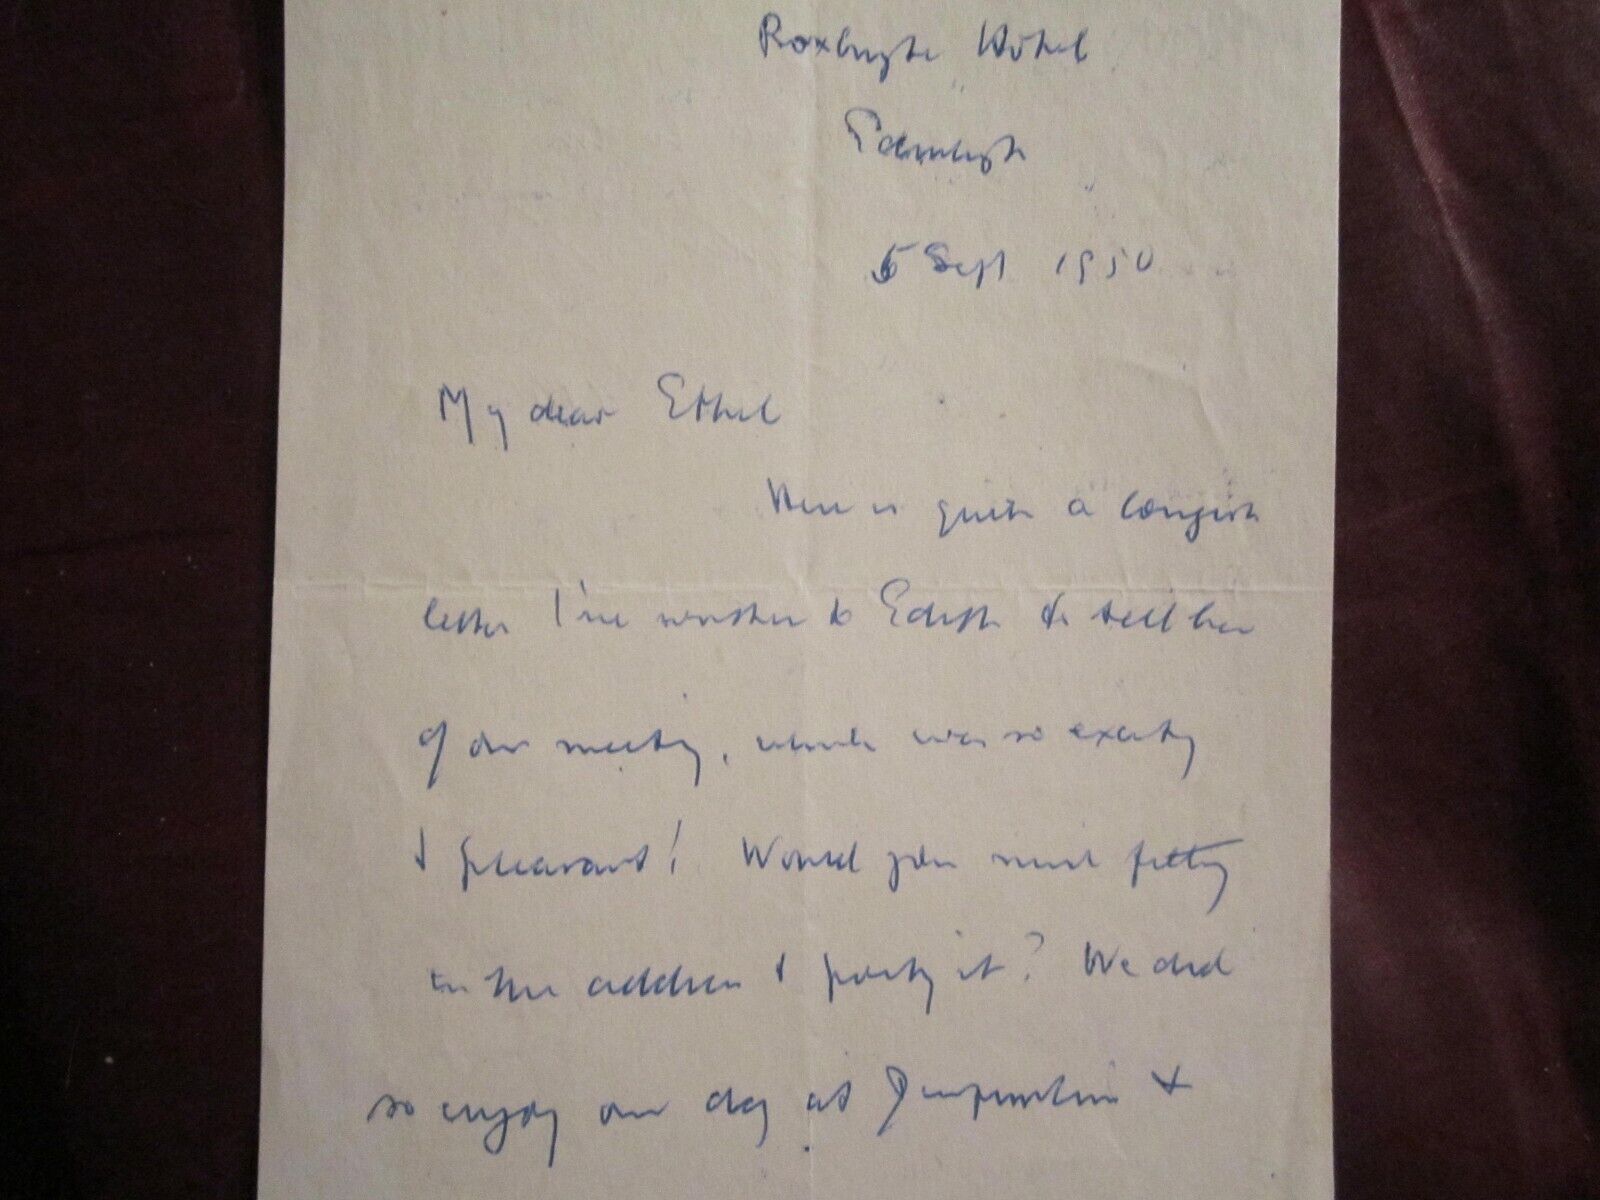 Roxburghe Hotel
Edinburgh
5 Sept 1950
My dear Ethel
Here is quite a longish
letter I've written to Edith to tell her
of our meeting, which was so exciting
& pleasant! Would you mind putting
in the address & posting it? We did
so enjoy our day at &